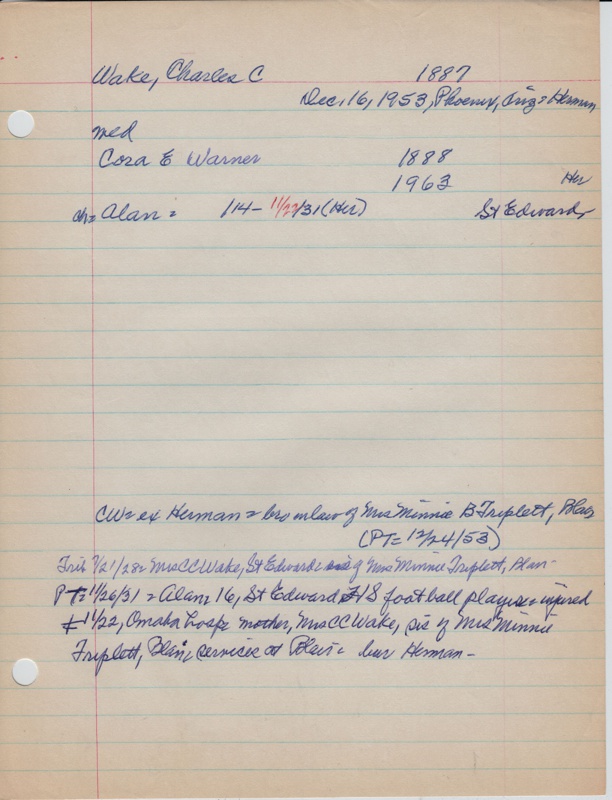 Wake, Charles C 1887
Dec, 16, 1953, Phoenix, Ariz = Herman
med
Cora E Warner 1888
1963 Her
ch = Alan = 114 - 11/22/31 (Her) St Edward
CW = ex Herman = bro in law of Mrs Minnie B Triplett, Blair
(PT = 12/24/53)
Trib 7/21/28 = Mrs CC Wake, St Edward = sis of Mrs Minnie Triplett, Blair -
PT = 11/26/31 = Alan = 16, St Edward HS football player = injured
11/22, Omaha hosp = mother, Mrs CC Wake, sis of Mrs Minnie
Triplett, Blair = services at Blair = bur Herman -